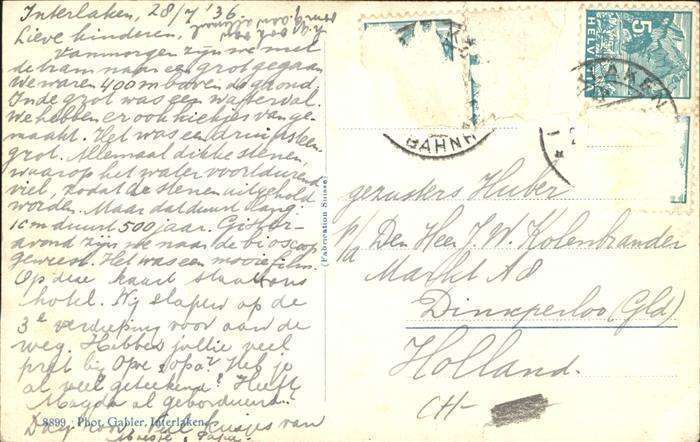 Interlaken, 28/7 '36.
Lieve kinderen,
Vanmorgen zijn we met
de tram naar een grot gegaan
We waren 400 m boven de grond.
In de grot was een waterval.
We hebben er ook kiekjes van ge-
maakt. Het was een druipsteen
grot. Allemaal dikke stenen,
waarop het water voortdurend
viel, zodat de stenen uitgehold
worden. Maar dat duurt lang.
1 cm duurt 500 jaar. Gister-
avond zijn we naar de bioscoop
geweest. Het was een mooie film.
Op deze kaart staat ons
hotel. Wij slapen op de
3e verdieping voor aan de
weg. Hebben jullie veel
pret bij Opoe & opa? Heb je
al veel getekend? Heeft
Magda al geborduurd..
Dag hoor, veel kusjes van
8899 Phot. Gabler, Interlaken
(Fabrication Suisse)
5
HELVETIA
BAHNH
gezusters Huber
p/a Den Heer J. W. Kolenbrander
Markt A8
Dinxperloo (Gld)
Holland.
CH-